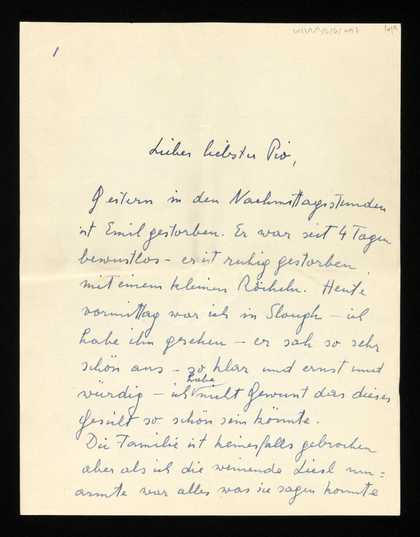 1
Lieber liebster Pio,
Gestern in den Nachmittagsstunden
ist Emil gestorben. Er war seit 4 Tagen
bewustlos – er ist ruhig gestorben,
mit einem kleinen Röcheln. Heute
vormittag war ich in Slough – ich
habe ihn gesehen – er sah so sehr
schön aus – so klar und ernst und
würdig – ich habe nicht gewusst das dieses
gesicht so schön sein könnte.
Die Familie ist keinesfalls gebrochen
aber als ich die weinende Liesl um=
armte war alles was sie sagen konnte